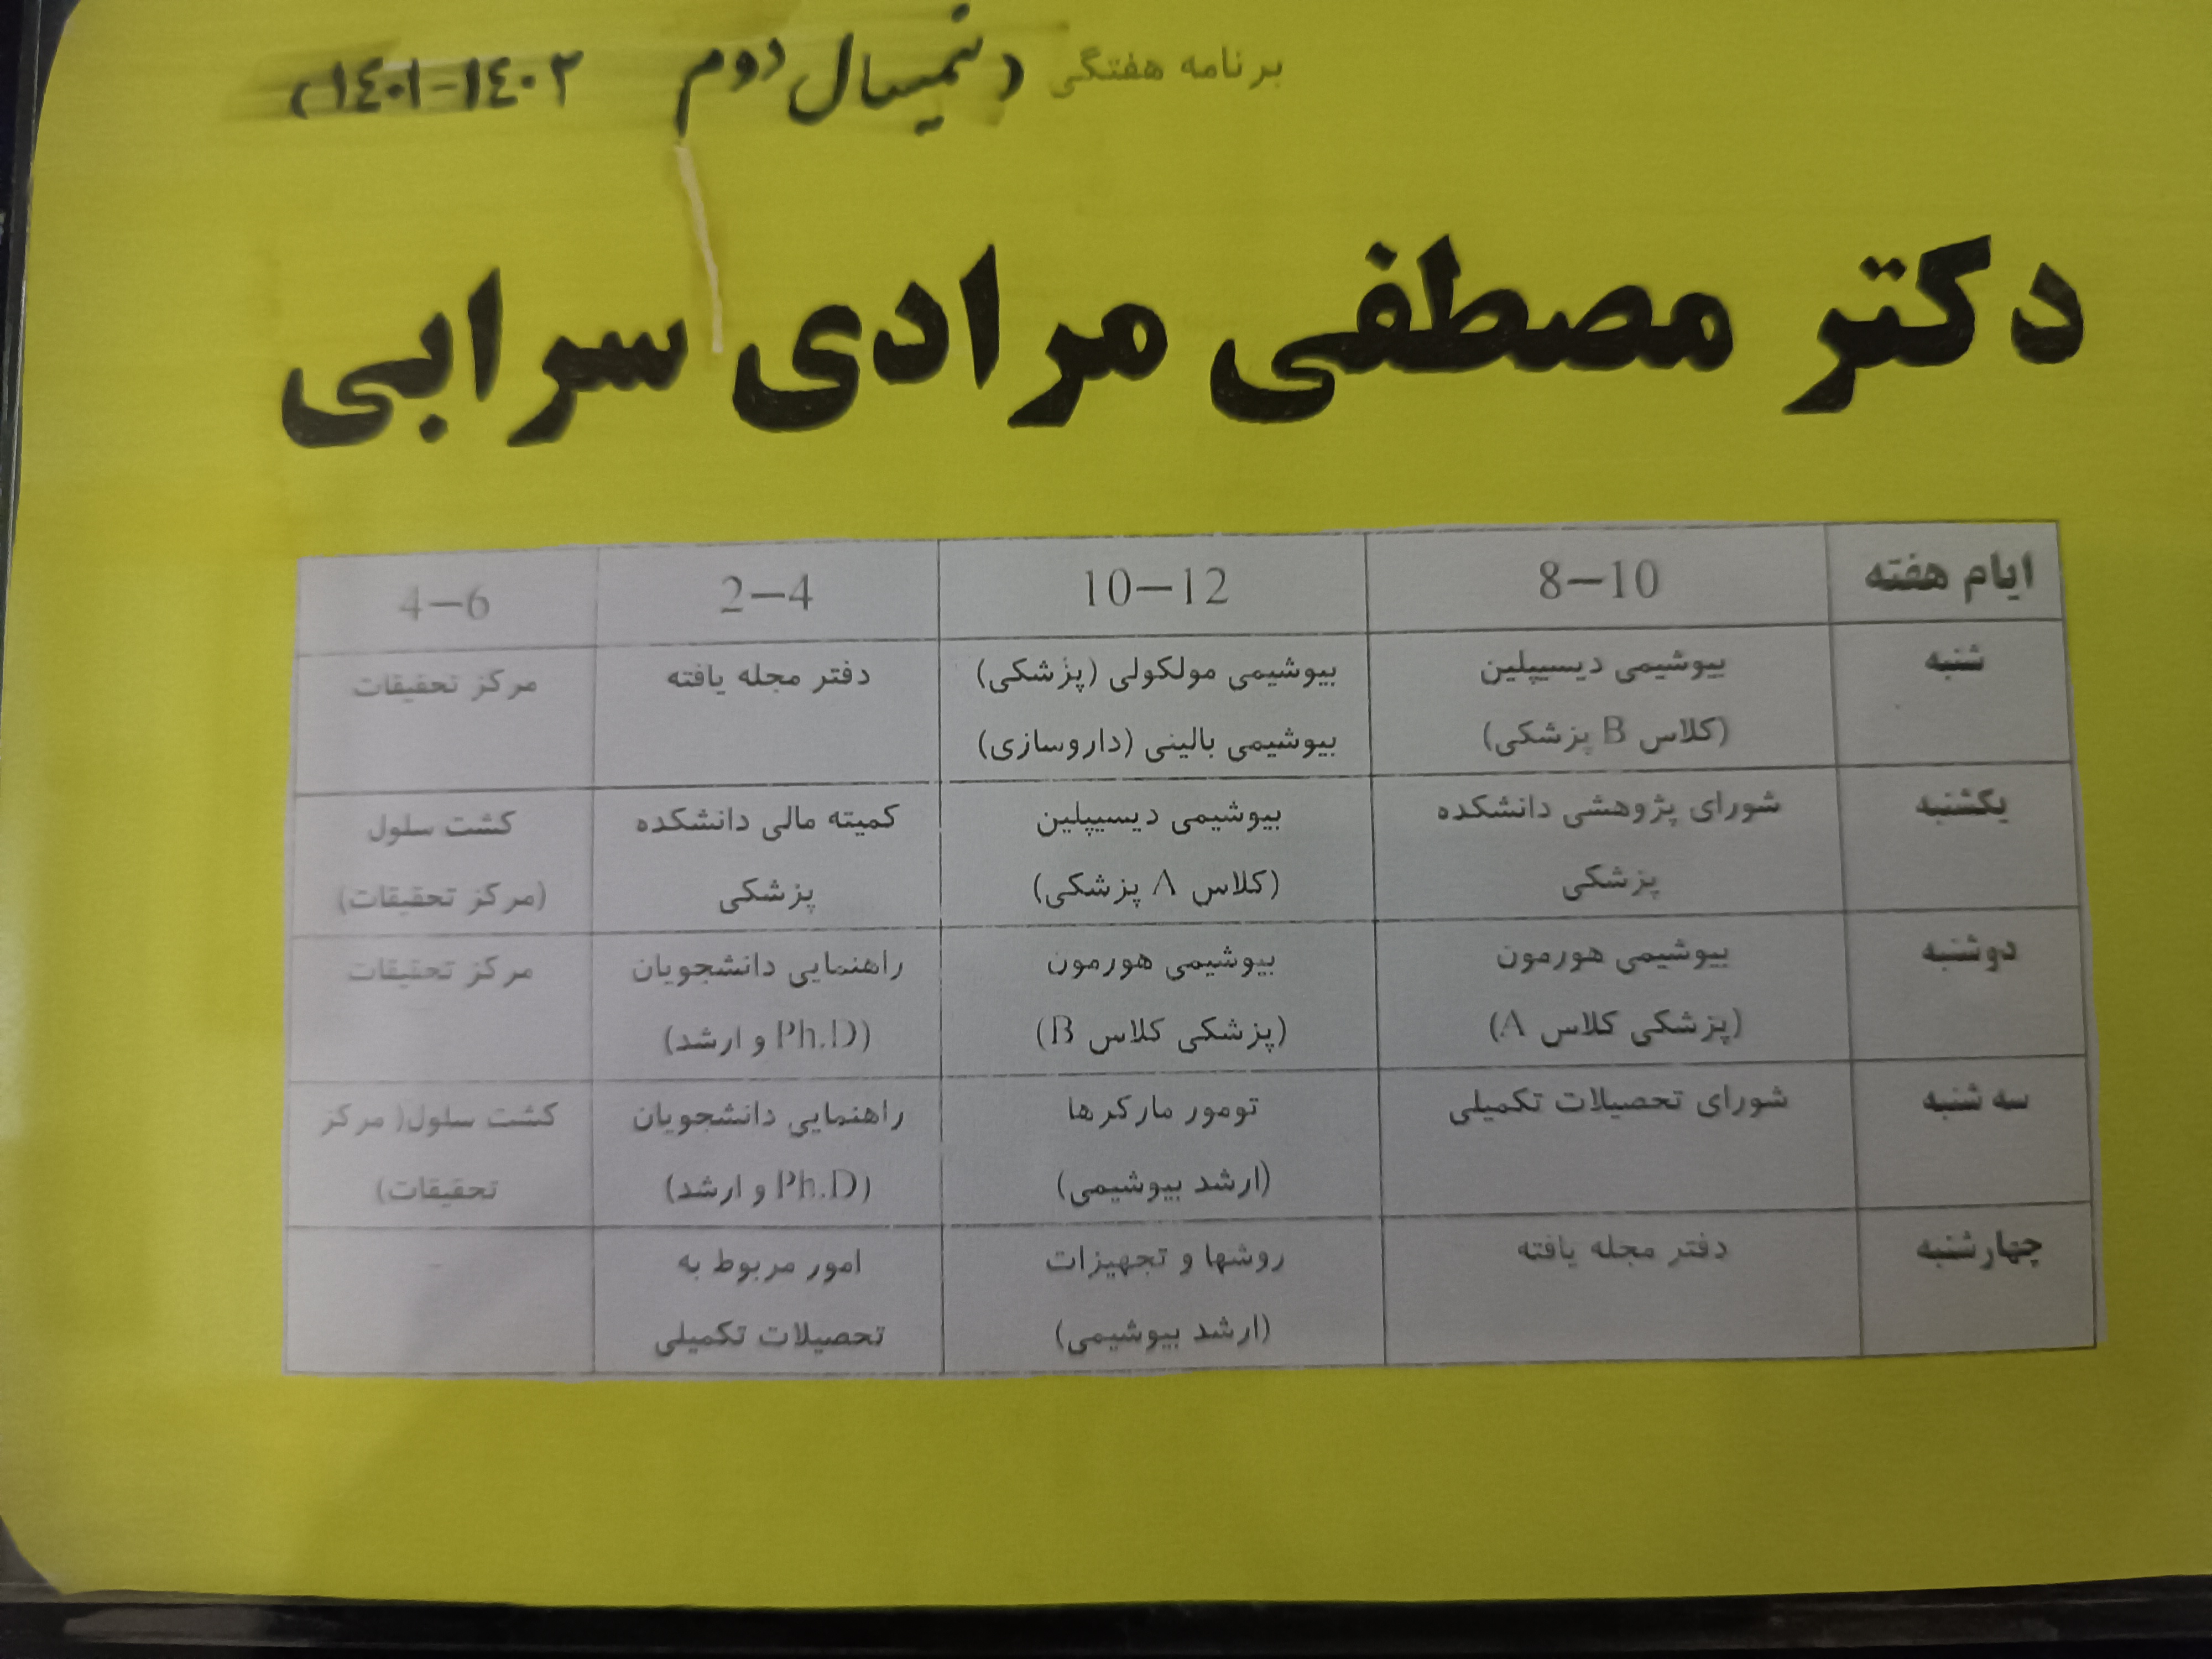 برنامه هفتگی (نیمسال دوم ۱۴۰۲-۱۴۰۱)
دکتر مصطفی مرادی سرابی
ایام هفته 8–10 10–12 2–4 4–6
شنبه بیوشیمی دیسیپلین بیوشیمی مولکولی (پزشکی) دفتر مجله یافته مرکز تحقیقات
(کلاس B پزشکی) بیوشیمی بالینی (داروسازی)
یکشنبه شورای پژوهشی دانشکده بیوشیمی دیسیپلین کمیته مالی دانشکده کشت سلول
پزشکی (کلاس A پزشکی) پزشکی (مرکز تحقیقات)
دوشنبه بیوشیمی هورمون بیوشیمی هورمون راهنمایی دانشجویان مرکز تحقیقات
(پزشکی کلاس A) (پزشکی کلاس B) (Ph.D و ارشد)
سه شنبه شورای تحصیلات تکمیلی تومور مارکرها راهنمایی دانشجویان کشت سلول( مرکز
(ارشد بیوشیمی) (Ph.D و ارشد) تحقیقات)
چهارشنبه دفتر مجله یافته روشها و تجهیزات امور مربوط به -
(ارشد بیوشیمی) تحصیلات تکمیلی